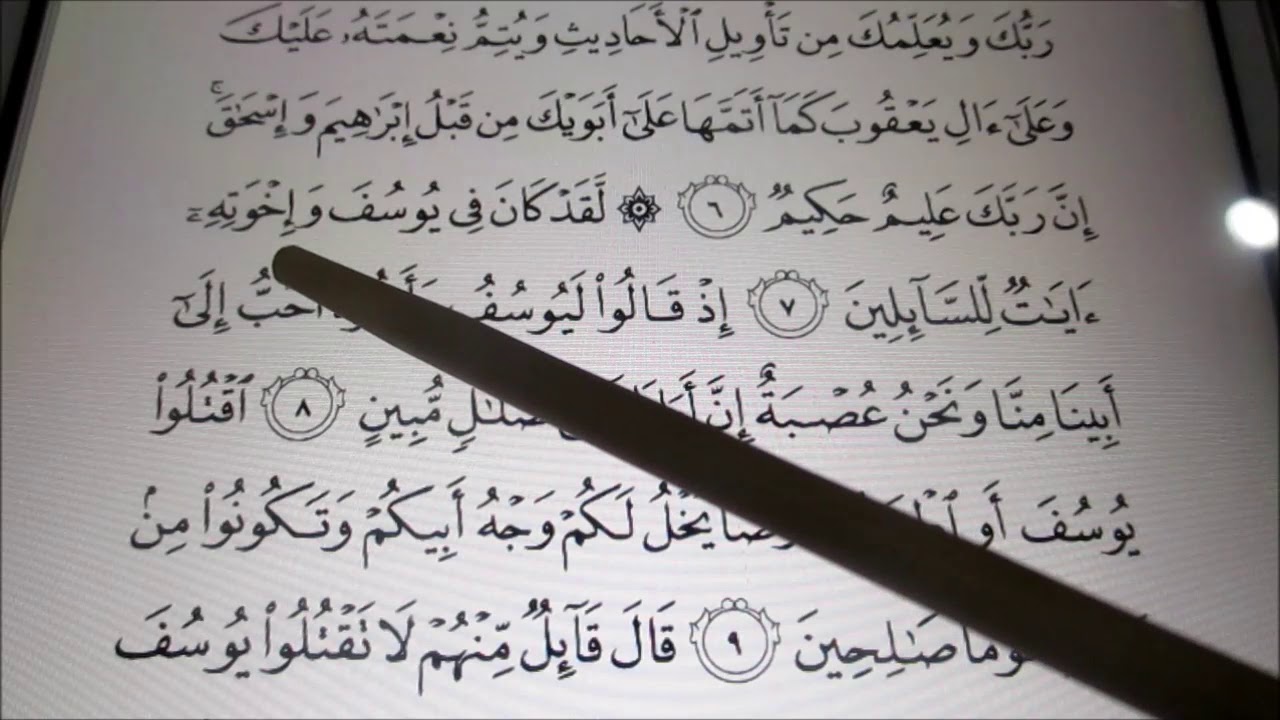 رَبُّكَ وَيُعَلِّمُكَ مِن تَأْوِيلِ ٱلْأَحَادِيثِ وَيُتِمُّ نِعْمَتَهُۥ عَلَيْكَ
وَعَلَىٰٓ ءَالِ يَعْقُوبَ كَمَآ أَتَمَّهَا عَلَىٰٓ أَبَوَيْكَ مِن قَبْلُ إِبْرَٰهِيمَ وَإِسْحَٰقَۚ
إِنَّ رَبَّكَ عَلِيمٌ حَكِيمٌ ٦ ۞ لَّقَدْ كَانَ فِى يُوسُفَ وَإِخْوَتِهِۦٓ
ءَايَٰتٌ لِّلسَّآئِلِينَ ٧ إِذْ قَالُوا۟ لَيُوسُفُ أَحَبُّ إِلَىٰٓ
أَبِينَا مِنَّا وَنَحْنُ عُصْبَةٌ إِنَّ ضَلَٰلٍ مُّبِينٍ ٨ ٱقْتُلُوا۟
يُوسُفَ أَوِ يَخْلُ لَكُمْ وَجْهُ أَبِيكُمْ وَتَكُونُوا۟ مِنۢ
صَٰلِحِينَ ٩ قَالَ قَآئِلٌ مِّنْهُمْ لَا تَقْتُلُوا۟ يُوسُفَ